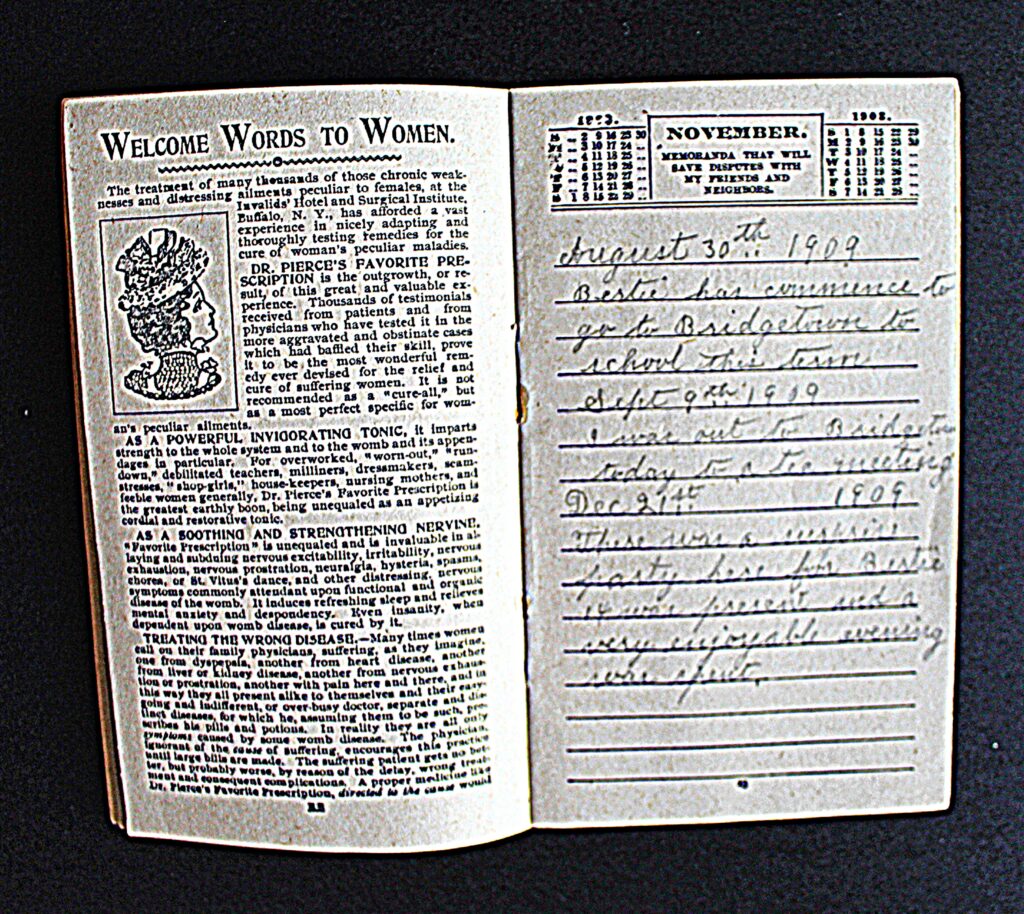 WELCOME WORDS TO WOMEN.
The treatment of many thousands of those chronic weak-
nesses and distressing ailments peculiar to females, at the
Invalids' Hotel and Surgical Institute,
Buffalo, N. Y., has afforded a vast
experience in nicely adapting and
thoroughly testing remedies for the
cure of woman's peculiar maladies.
DR. PIERCE'S FAVORITE PRE-
SCRIPTION is the outgrowth, or re-
sult, of this great and valuable ex-
perience. Thousands of testimonials
received from patients and from
physicians who have tested it in the
more aggravated and obstinate cases
which had baffled their skill, prove
it to be the most wonderful rem-
edy ever devised for the relief and
cure of suffering women. It is not
recommended as a "cure-all," but
as a most perfect specific for wom-
an's peculiar ailments.
AS A POWERFUL INVIGORATING TONIC, it imparts
strength to the whole system and to the womb and its appen-
dages in particular. For overworked, "worn-out," "run-
down," debilitated teachers, milliners, dressmakers, seam-
stresses, "shop-girls," house-keepers, nursing mothers, and
feeble women generally, Dr. Pierce's Favorite Prescription is
the greatest earthly boon, being unequaled as an appetizing
cordial and restorative tonic.
AS A SOOTHING AND STRENGTHENING NERVINE,
"Favorite Prescription" is unequaled and is invaluable in al-
laying and subduing nervous excitability, irritability, nervous
exhaustion, nervous prostration, neuralgia, hysteria, spasms,
chorea, or St. Vitus's dance, and other distressing, nervous
symptoms commonly attendant upon functional and organic
disease of the womb. It induces refreshing sleep and relieves
mental anxiety and despondency. Even insanity, when
dependent upon womb disease, is cured by it.
TREATING THE WRONG DISEASE.—Many times women
call on their family physicians, suffering, as they imagine,
one from dyspepsia, another from heart disease, another
from liver or kidney disease, another from nervous exhaus-
tion or prostration, another with pain here and there, and in
this way they all present alike to themselves and their easy-
going and indifferent, or over-busy doctor, separate and dis-
tinct diseases, for which he, assuming them to be such, pre-
scribes his pills and potions. In reality they are all only
symptoms caused by some womb disease. The physician,
ignorant of the cause of suffering, encourages this practice
until large bills are made. The suffering patient gets no bet-
ter, but probably worse, by reason of the delay, wrong treat-
ment and consequent complications. A proper medicine like
Dr. Pierce's Favorite Prescription, directed to the cause would
NOVEMBER.
MEMORANDA THAT WILL
SAVE DISPUTES WITH
MY FRIENDS AND
NEIGHBORS.
1908.
S 1 8 15 22 29
M 2 9 16 23 30
T 3 10 17 24 ..
W 4 11 18 25 ..
T 5 12 19 26 ..
F 6 13 20 27 ..
S 7 14 21 28 ..
August 30th 1909
Bertie has commence to
go to Bridgetown to
school this term
Sept 9th 1909
I was out to Bridgetown
today to a tea meeting
Dec 21st 1909
There was a surprise
party here for Bertie
14 were present and a
very enjoyable evening
was spent.